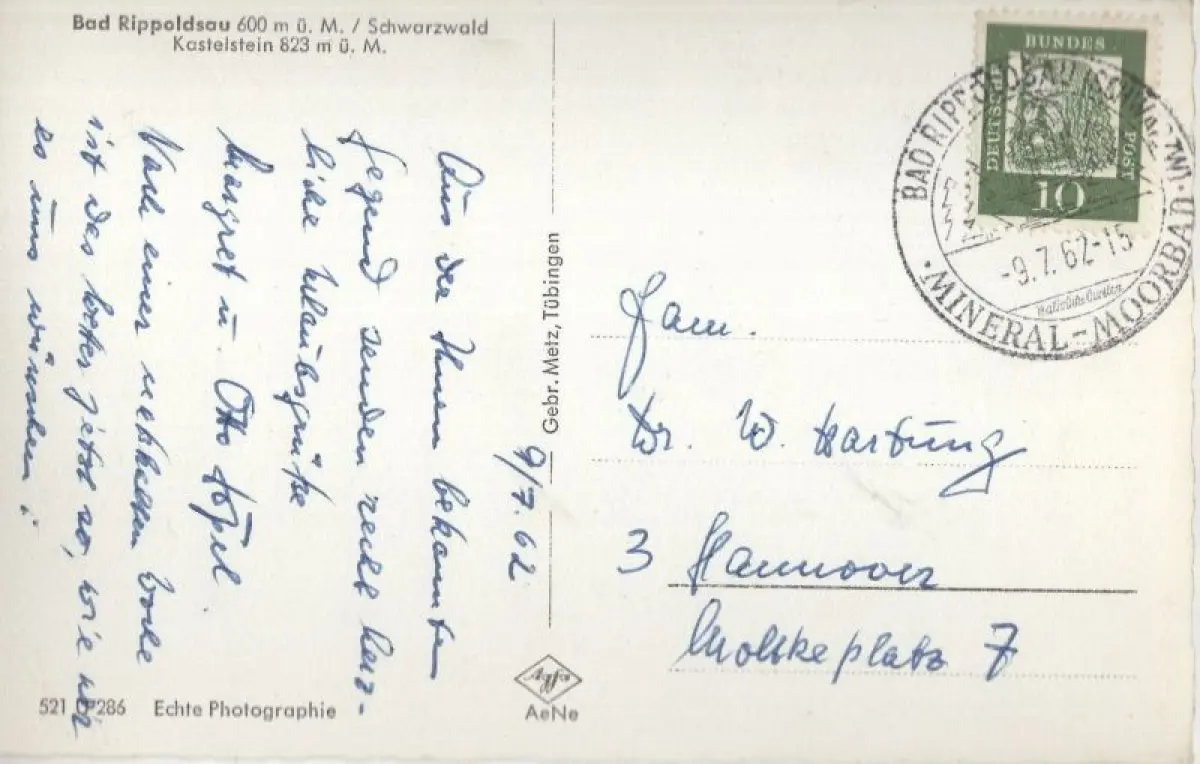 Bad Rippoldsau 600 m ü. M. / Schwarzwald
Kastelstein 823 m ü. M.
9/7.62
Aus der Ihnen bekannten
Gegend senden recht herz-
liche Urlaubsgrüße
Margret u. Otto
Nach einer nassen Woche
ist das Wetter jetzt so, wie wir
es uns wünschen!
521 286 Echte Photographie
Gebr. Metz, Tübingen
Agfa
AeNe
DEUTSCHE
BUNDES
POST
10
BAD RIPPOLDSAU (SCHWARZW)
-9.7.62-15
MINERAL-MOORBAD
Fam.
Dr. W. Hartung
3 Hannover
Moltkeplatz 7